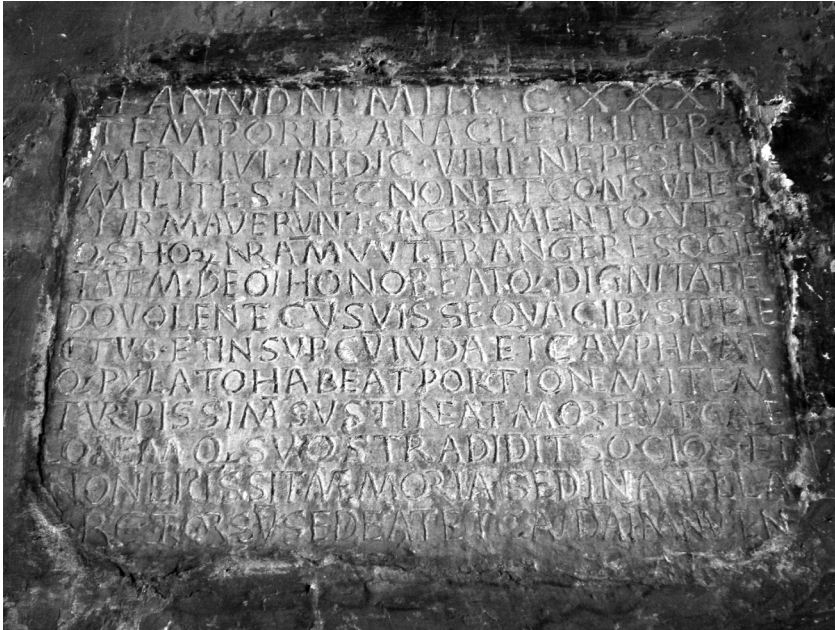 + ANNI DNI MILL · C · XXXI
TEMPORIB ANACLETI · II · PP
MEN · IVL · INDIC · VIIII · NEPESINI
MILITES · NECNON ET CONSVLES
FIRMAVERVNT SACRAMENTO · VT SI
NRAM VVLT FRANGERE SOCIE
TATEM · DE OI HONORE ATQ · DIGNITATE
DO VOLENTE CV SVIS SEQVACIB SIT EIE
CTVS · ET INSVP CV IVDA ET CAYPHA AT
Q · PYLATO HABEAT PORTIONEM · ITEM
TVRPISSIM SVSTINEAT MORTE VT GALE
LONEM SVOS TRADIDIT SOCIOS · ET
NON EI SIT MEMORIA SED IN ASELLA
RETRORSV SEDEAT ET CAVDA IN MANV TEN